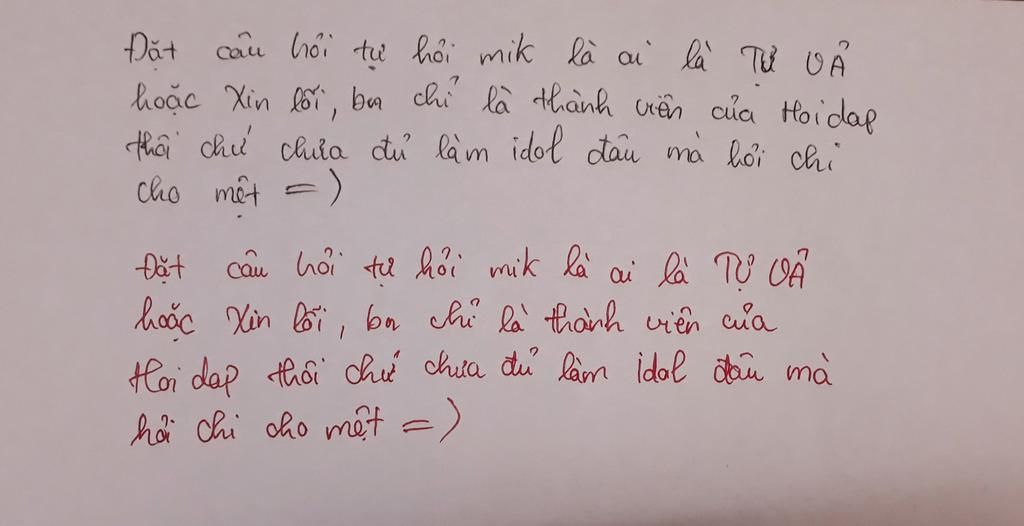 Đặt câu hỏi tự hỏi mik là ai là TỰ VẢ
hoặc Xin lỗi, bn chỉ là thành viên của Hoidap
thôi chứ chưa đủ làm idol đâu mà hỏi chi
cho mệt =)
Đặt câu hỏi tự hỏi mik là ai là TỰ VẢ
hoặc Xin lỗi, bn chỉ là thành viên của
Hoidap thôi chứ chưa đủ làm idol đâu mà
hỏi chi cho mệt =)